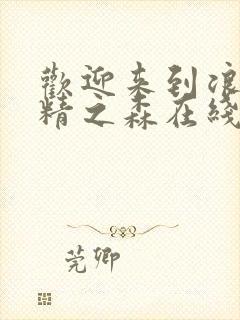 歡迎来到浪
精之森在綫
莞卿